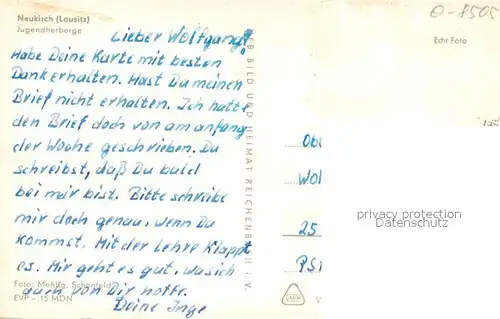 Neukirch (Lausitz)
Jugendherberge
Echt Foto
Lieber Wolfgang!
Habe Deine Karte mit besten
Dank erhalten. Hast Du meinen
Brief nicht erhalten. Ich hatte
den Brief doch von am anfang
der Woche geschrieben. Du
schreibst, daß Du bald
bei mir bist. Bitte schreibe
mir doch genau, wenn Du
kommst. Mit der Lehre klappt
es. Mir geht es gut, was ich
auch von Dir hoffe.
Deine Inge
Foto: Mehlig, Schönfeld
EVP –,15 MDN
BILD UND HEIMAT REICHENBACH I. V.
25
privacy protection